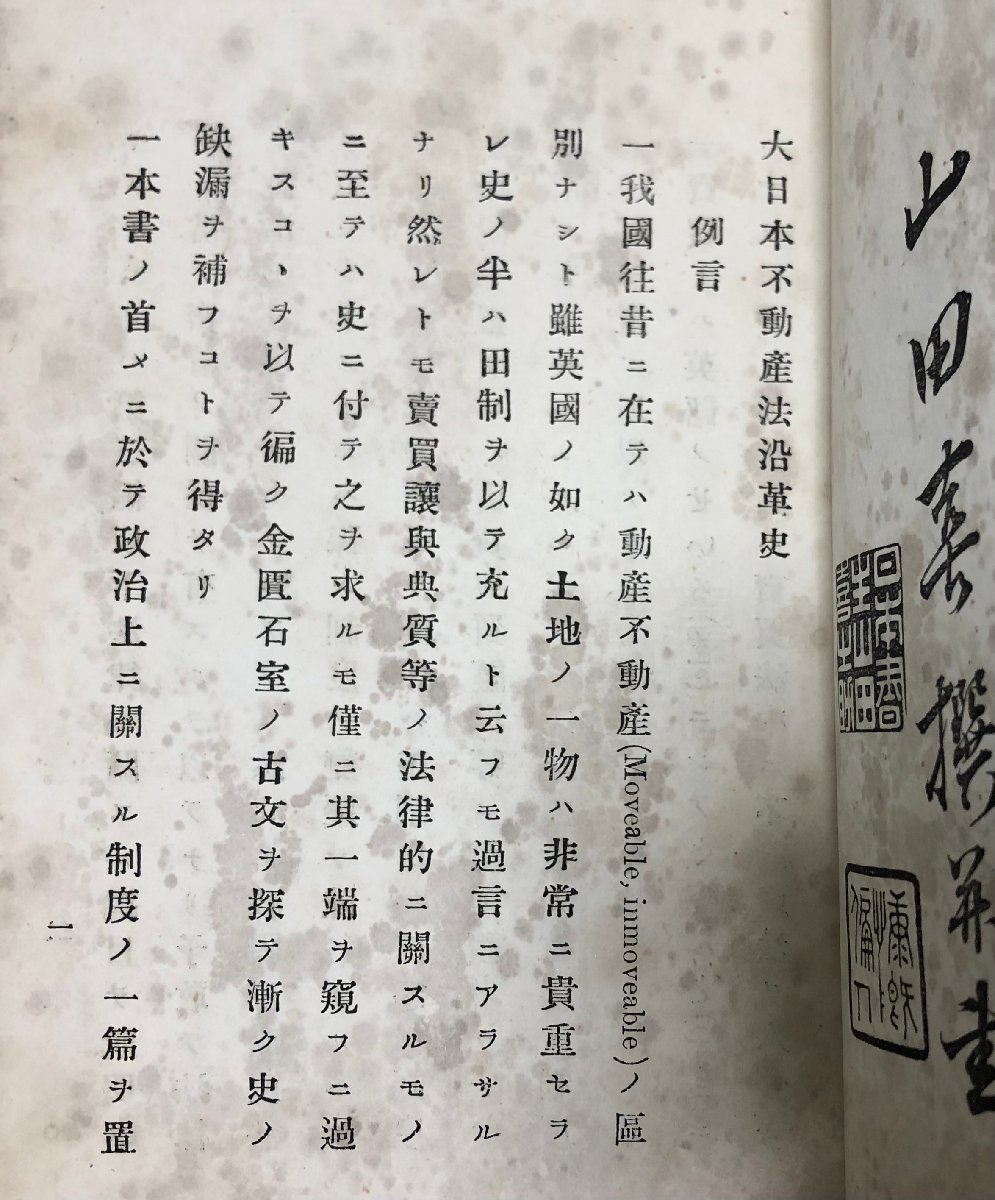 山田喜撰并書
大日本不動產法沿革史
例言
一我國往昔ニ在テハ動產不動產(Moveable, inmoveable)ノ區
別ナシト雖英國ノ如ク土地ノ一物ハ非常ニ貴重セラ
レ史ノ半ハ田制ヲ以テ充ルト云フモ過言ニアラサル
ナリ然レトモ賣買讓與典質等ノ法律的ニ關スルモノ
ニ至テハ史ニ付テ之ヲ求ルモ僅ニ其一端ヲ窺フニ過
キスコヽヲ以テ徧ク金匱石室ノ古文ヲ探テ漸ク史ノ
缺漏ヲ補フコトヲ得タリ
一本書ノ首メニ於テ政治上ニ關スル制度ノ一篇ヲ置
一